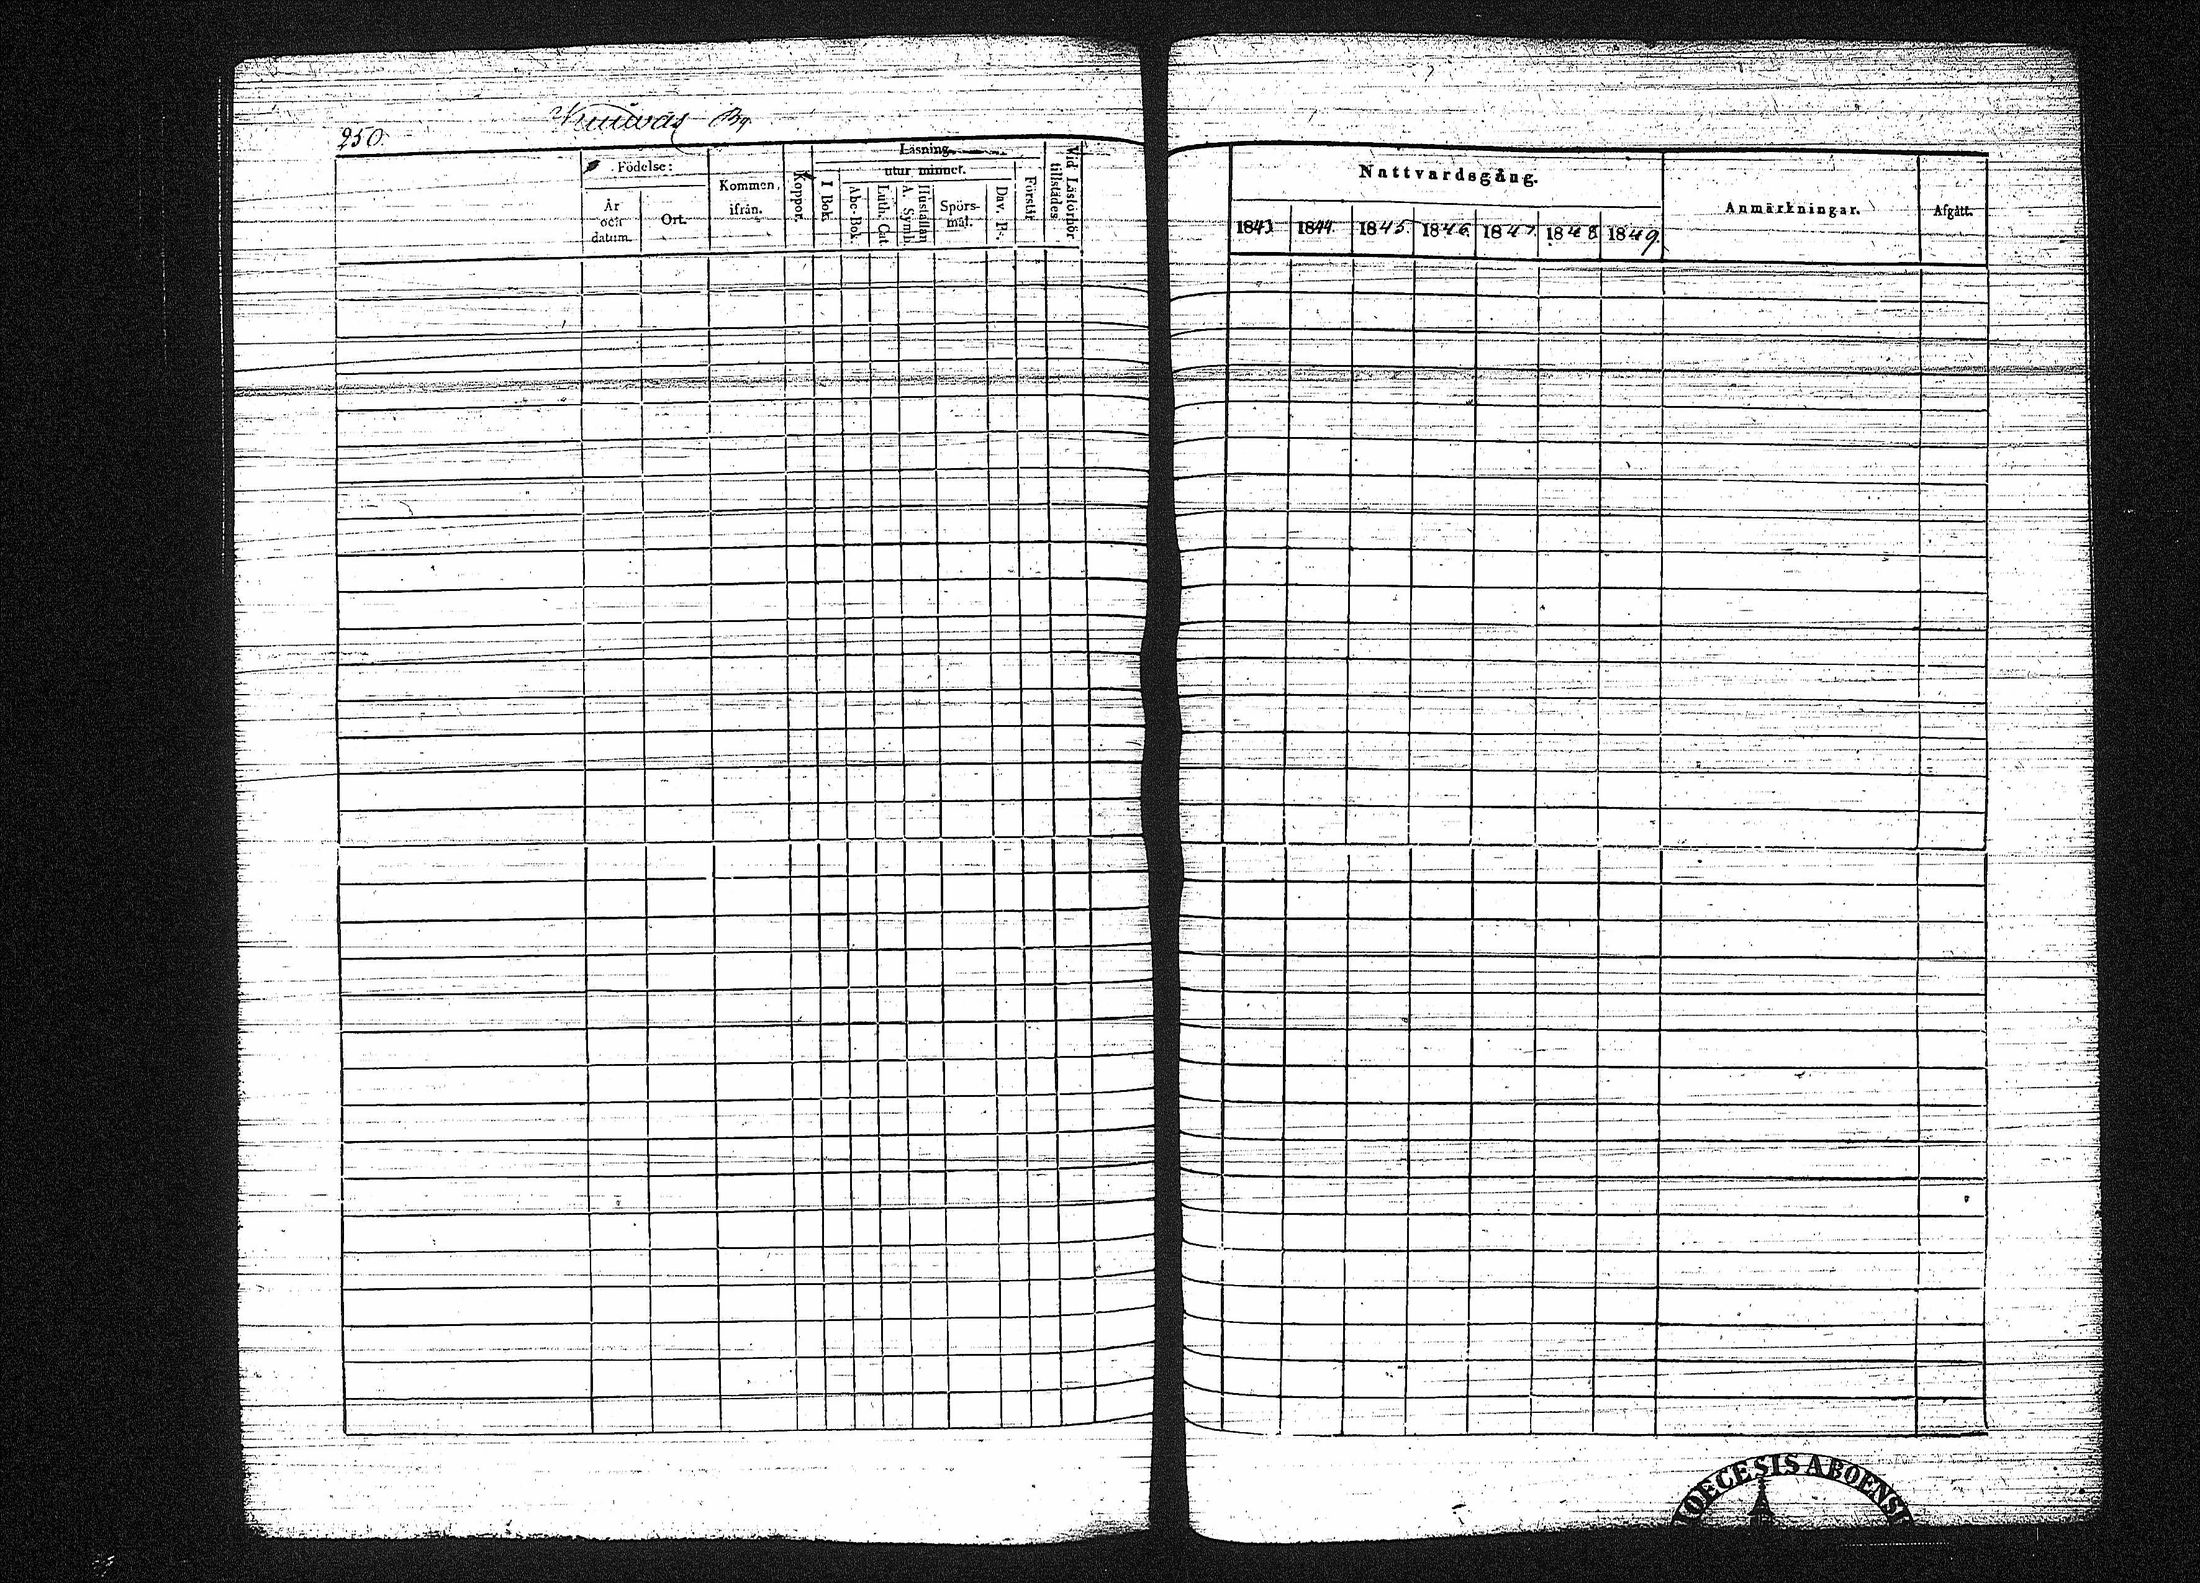 250.
By
Födelse:
År och datum.
Ort.
Kommen ifrån.
Koppor.
Läsning.
utur minnet.
I Bok
Abc-Bok.
Luth. Cat
Hustaflan A. Symb.
Spörs-mål.
Dav. Ps.
Förstår
Vid Läsförhör tillstädes
Nattvardsgång.
1843 1844 1845 1846 1847 1848 1849.
Anmärkningar.
Afgått.
DIOECESIS ABOENSIS